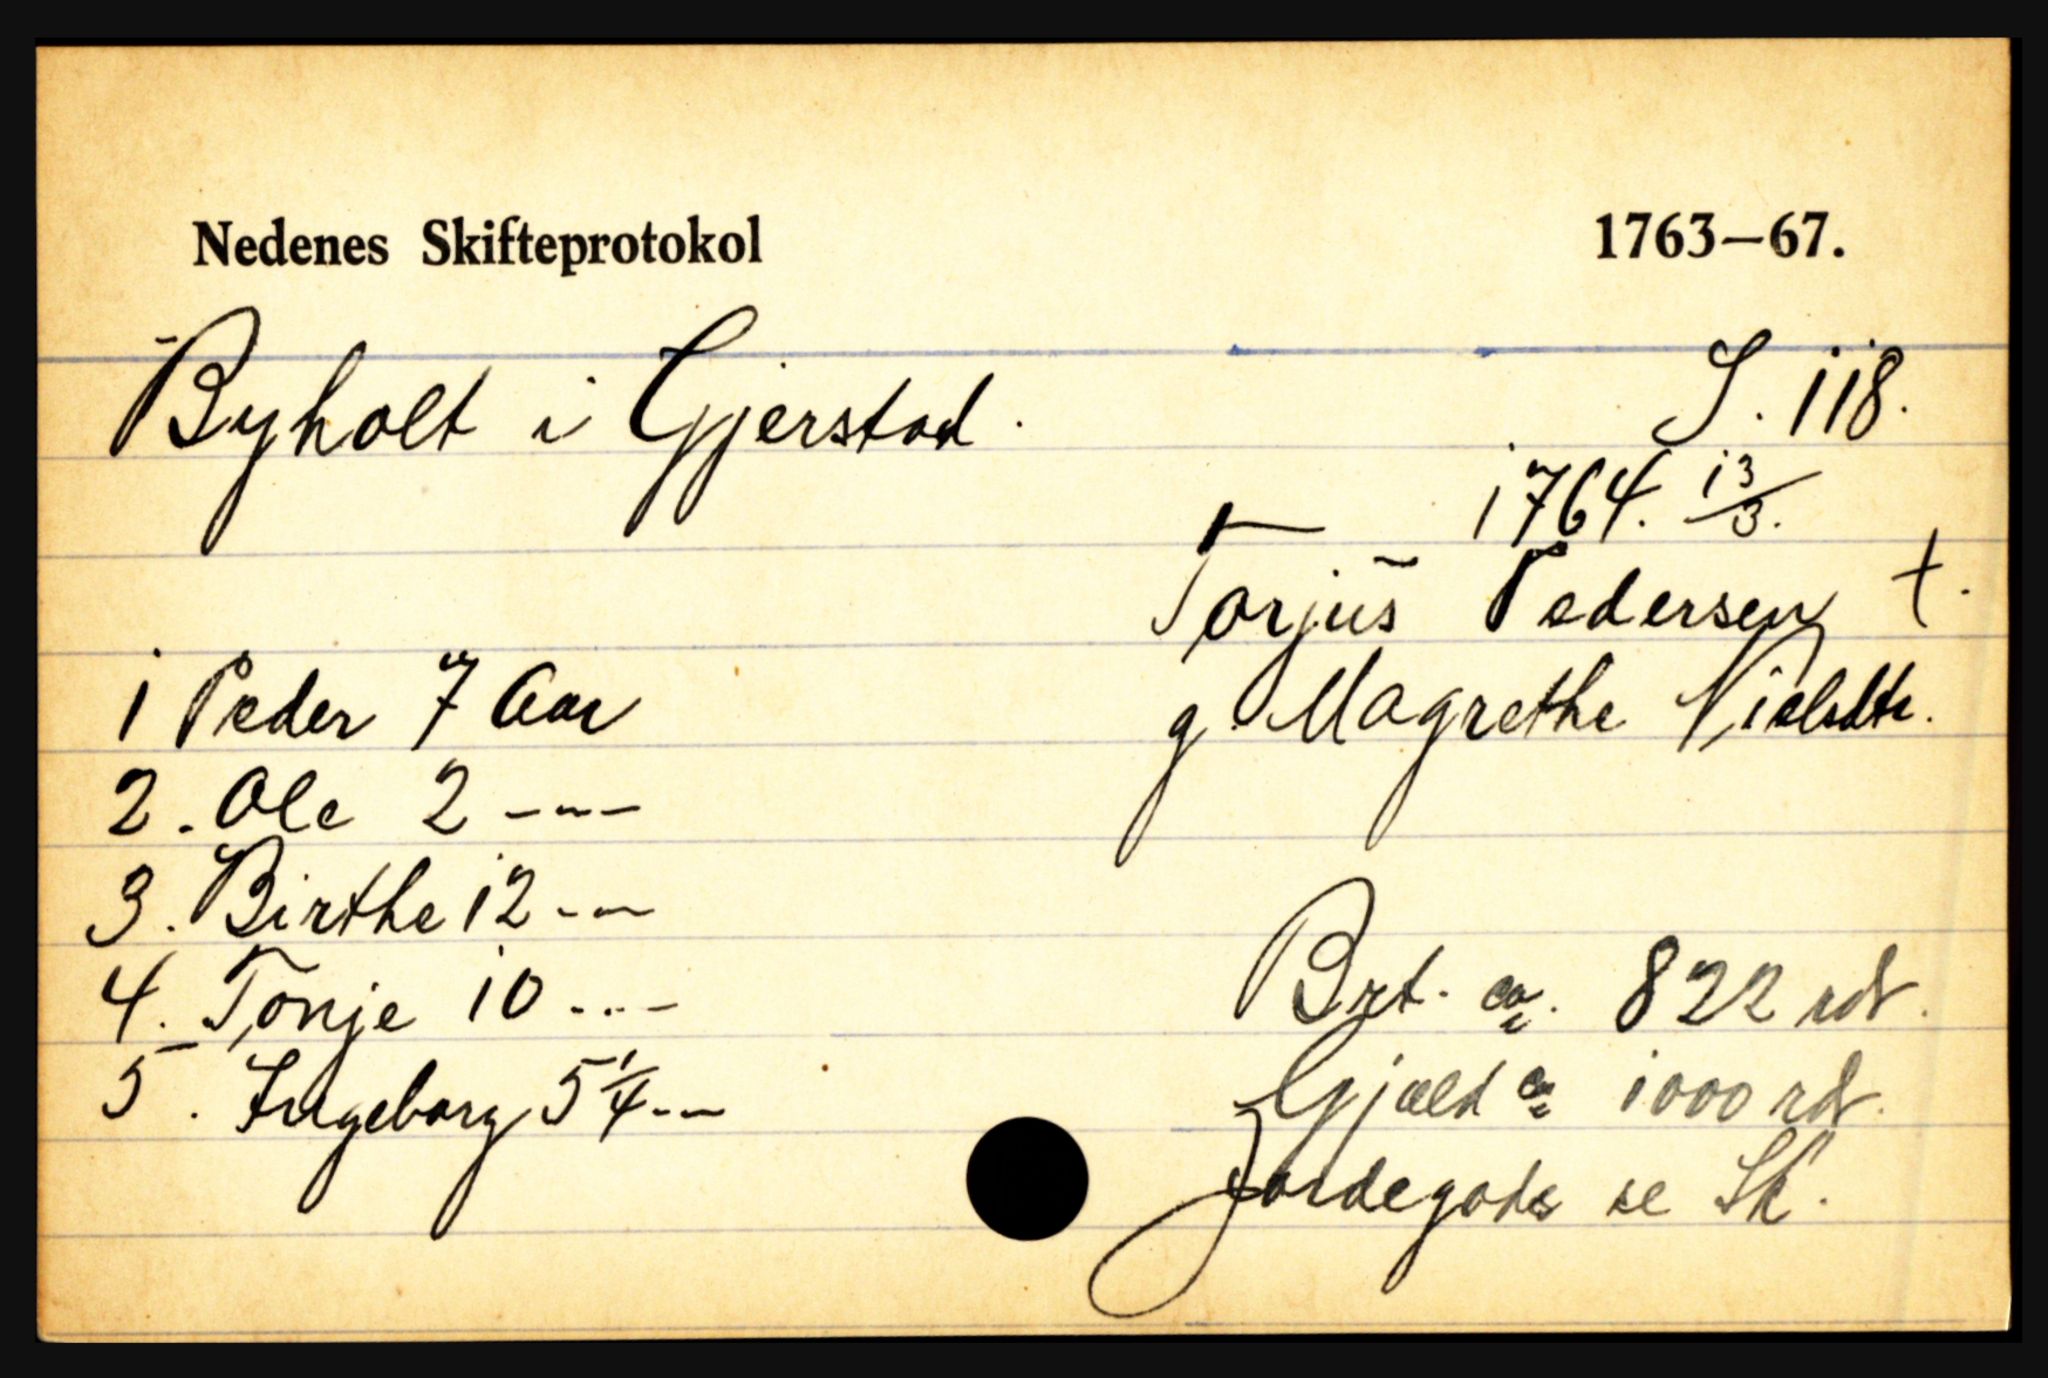 Nedenes Skifteprotokol 1763–67.
Byholt i Gjerstad. S. 118.
1764. 13/3.
Torjus Pedersen †.
g. Magrethe Nielsdtr.
1 Peder 7 Aar
2. Ole 2 ---
3. Birthe 12 ---
4. Tonje 10 ---
5. Ingeborg 5 1/4 ---
Brt. ca. 822 rdr.
Gjæld ca 1000 rdr.
Jordegods se Sk.